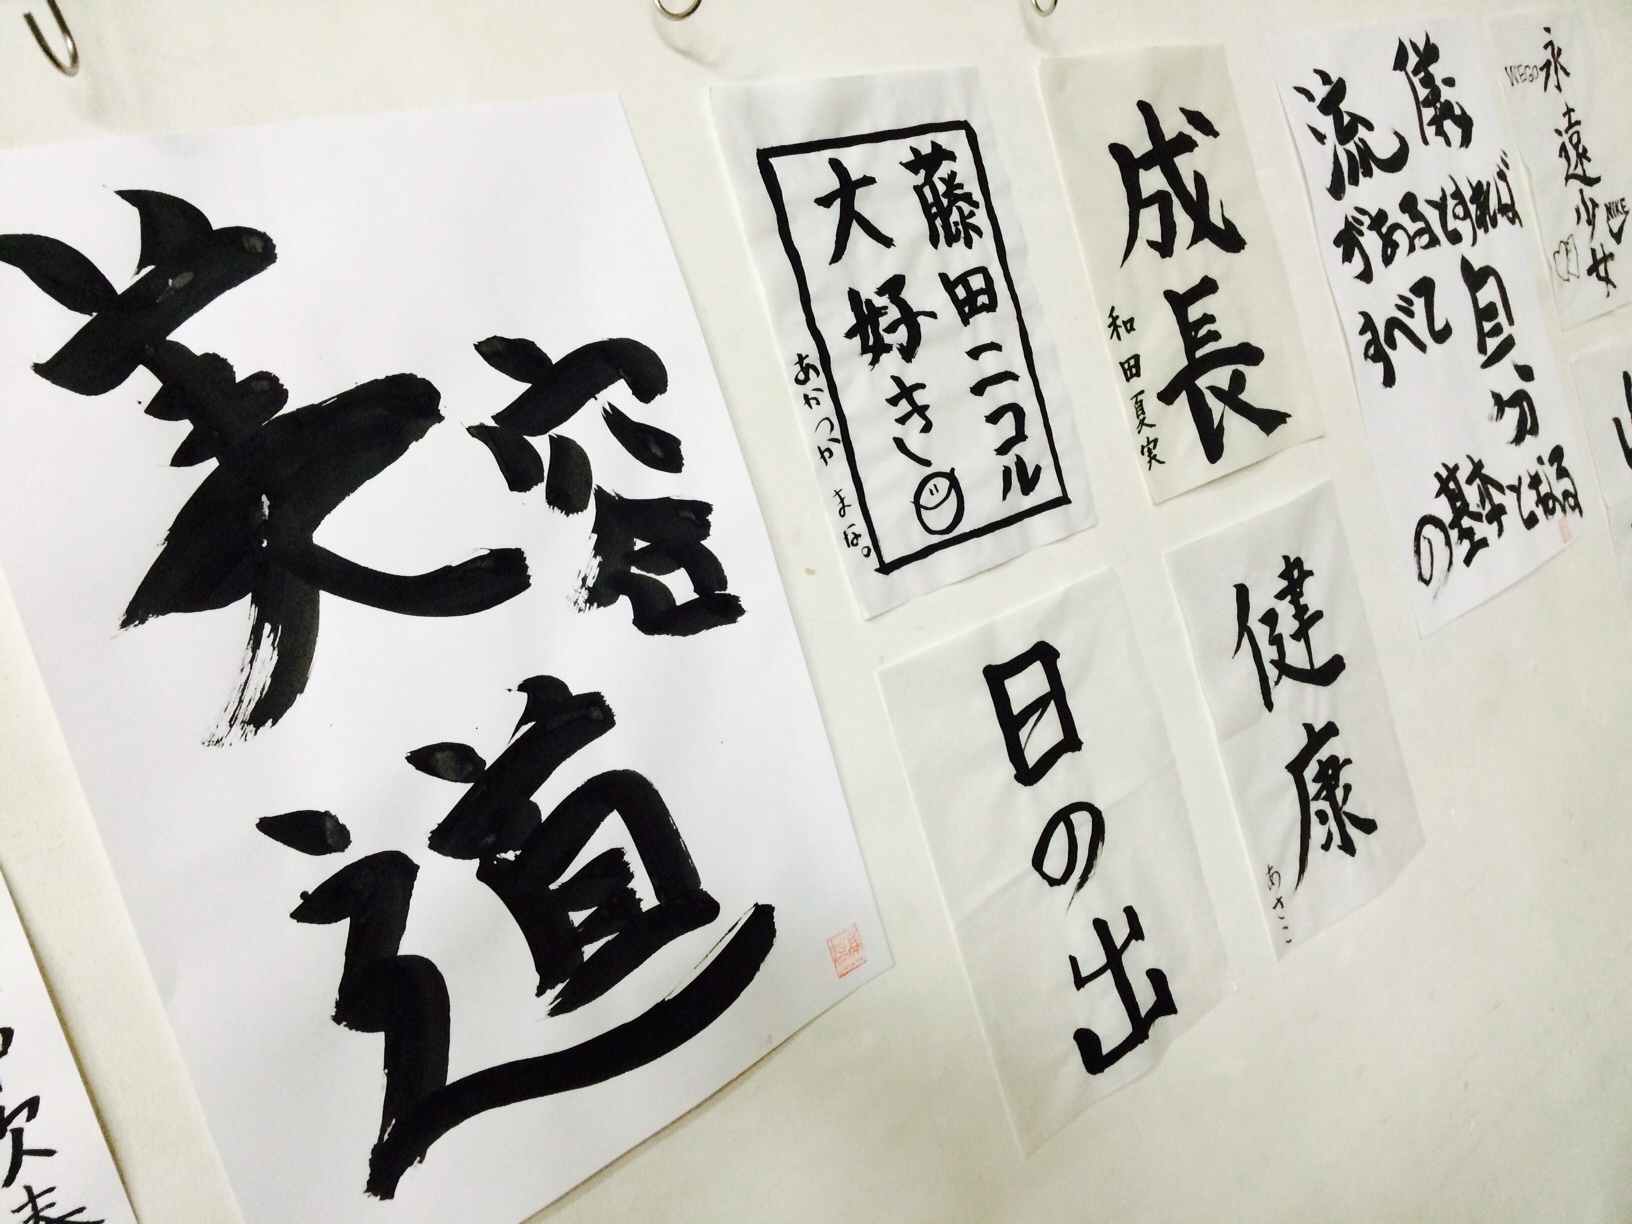 美容
道
藤田ニコル
大好き
あかつか まな。
成長
和田夏実
日の出
健康
あさこ
流儀
があるとすれば
自分
すべて
の基本となる
永遠少女
WEGO
NIKE